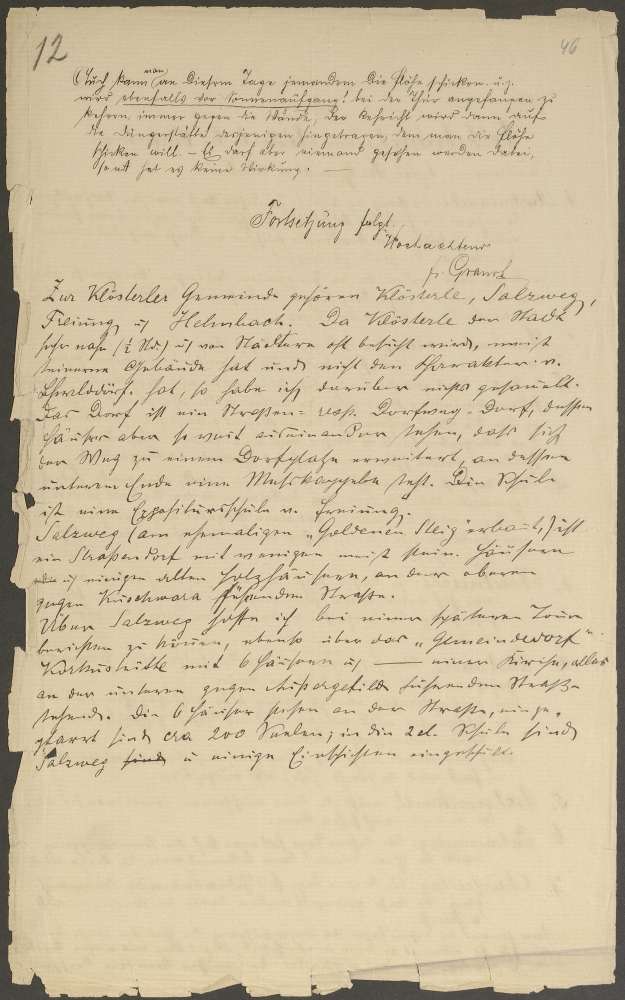 12
46
(Auch kann man an diesem Tage jemandem die Flöhe schicken. u. z.
wird ebenfalls vor Sonnenaufgang! bei der Thür angefangen zu
kehren, immer gegen die Wände, der Kehricht wird dann auf
die Düngerstätte desjenigen hingetragen, dem man die Flöhe
schicken will. – Es darf aber niemand gesehen werden dabei,
sonst hat es keine Wirkung. –
Fortsetzung folgt.
Hochachtend
Zur Klösterler Gemeinde gehören Klösterle, Salzweg,
Freiung, u. Helmbach. Da Klösterle der Stadt
sehr nahe (½ Std.) u. von Städtern oft besucht wird, meist
steinerne Gebäude hat und nicht den Charakter v.
hat, so habe ich darüber nichts gesammelt.
Das Dorf ist ein Straßen- resp. Dorfweg-Dorf, dessen
Häuser aber so weit auseinander stehen, dass sich
der Weg zu einem Dorfplatze erweitert, an dessen
unterem Ende eine steht. Die Schule
ist eine Expositurschule v. Freiung.
Salzweg (am ehemaligen „Goldenen Steig" erbaut,) ist
ein Straßendorf mit wenigen meist stein. Häusern
u. einigen alten Holzhäusern, an der oberen
gegen Kuschwarda führenden Straße.
Über Salzweg hoffe ich bei einer späteren Tour
berichten zu können, ebenso über das „Gemeindedorf"
mit 6 Häusern u. — einer Kirche, alles
an der unteren gegen Außergefild führenden Straße
stehend. Die 6 Häuser stehen an der Straße, einge-
pfarrt sind cra 200 Seelen; in die 2cl. Schule sind
Salzweg u einige Einschichten eingeschult.